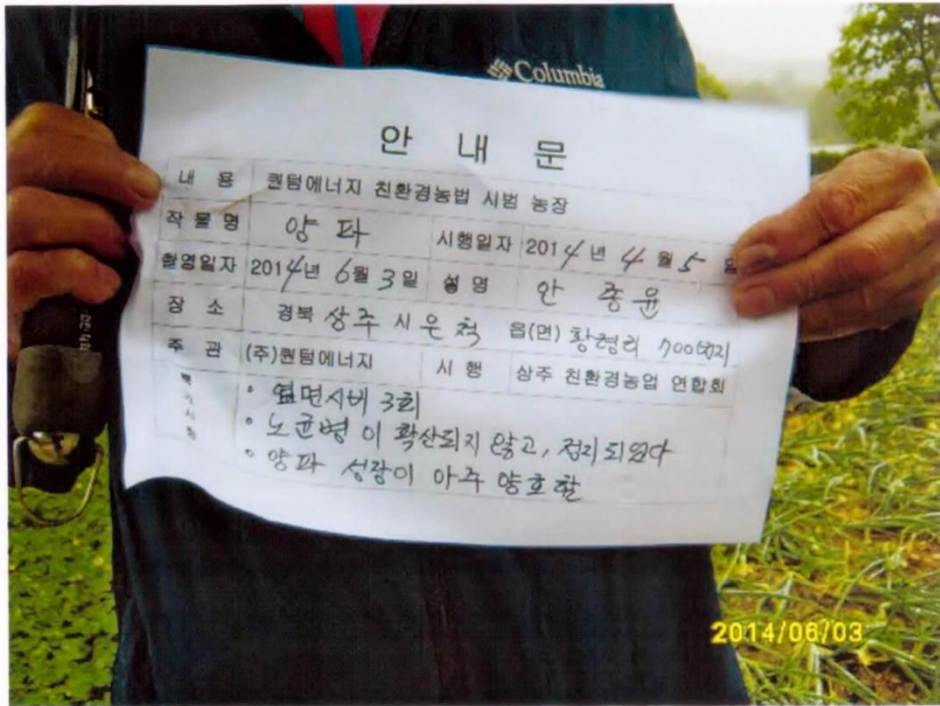 Columbia
안 내 문
내 용 퀀텀에너지 친환경농법 시범 농장
작 물 명 양 파 시행일자 2014년 4월 5일
촬영일자 2014년 6월 3일 성 명 안 종 윤
장 소 경북 상주 시 은척 읍(면) 황령리 700번지
주 관 (주)퀀텀에너지 시 행 상주 친환경농업 연합회
• 엽면시비 3회
• 노균병이 확산되지 않고, 정지되었다
• 양파 성장이 아주 양호함
2014/06/03